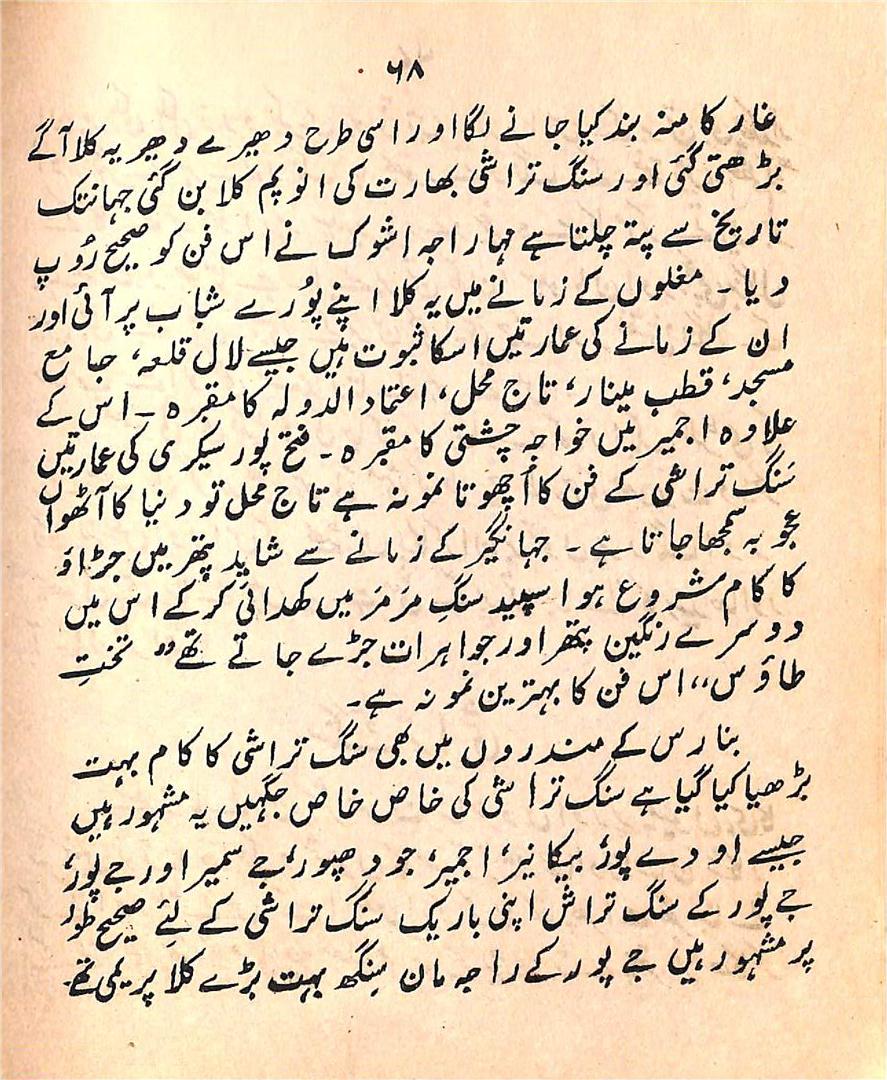 ۶۸
غار کا منہ بند کیا جانے لگا اور اسی طرح دھیرے دھیر یہ کلا آگے
بڑھتی گئی اور سنگ تراشی بھارت کی انوپم کلا بن گئی جہانتک
تاریخ سے پتہ چلتا ہے مہاراجہ اشوک نے اس فن کو صحیح رُوپ
دیا۔ مغلوں کے زمانے میں یہ کلا اپنے پوُرے شباب پر آئی اور
ان کے زمانے کی عمارتیں اسکا ثبوت ہیں جیسے لال قلعہ، جامع
مسجد، قطب مینار، تاج محل، اعتماد الدولہ کا مقبرہ ۔ اس کے
علاوہ اجمیر میں خواجہ چشتی کا مقبرہ ۔ فتح پور سیکری کی عمارتیں
سَنگ تراشی کے فن کا اُچھوتا نمونہ ہے تاج محل تو دنیا کا آٹھواں
عجوبہ سمجھا جاتا ہے ۔ جہانگیر کے زمانے سے شاید پتھر میں جڑاؤ
کا کام شروع ہوا سپید سنگِ مَرمَر میں کھدائی کر کے اس میں
دوسرے رنگین پتھر اور جواہرات جڑے جاتے تھے ” تختِ
طاؤس،، اس فن کا بہترین نمونہ ہے۔
بنارس کے مندروں میں بھی سنگ تراشی کا کام بہت
بڑھیا کیا گیا ہے سنگ تراشی کی خاص خاص جگہیں یہ مشہور ہیں
جیسے اودے پور، بیکانیر، اجمیر، جودھپور، جے سمیر اور جے پور،
جے پور کے سنگ تراش اپنی باریک سنگ تراشی کے لئے صحیح طور
پر مشہور ہیں جے پور کے راجہ مان سِنگھ بہت بڑے کلا پریمی تھے۔